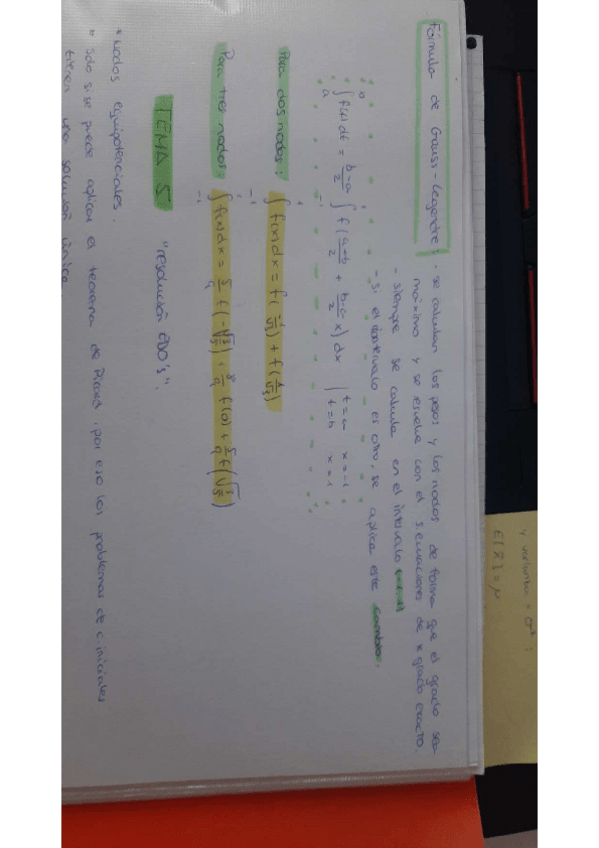 Fórmula de Gauss-Legendre: · se calculan los pesos y los nodos de forma que el grado sea
máximo y se resuelve con el s. ecuaciones de x grado exacto.
- siempre se calcula en el intervalo
- si el intervalo es otro, se aplica este cambio.
∫_a^b f(t) dt = (b-a)/2 ∫_{-1}^1 f((a+b)/2 + (b-a)/2 x) dx | t=a x=-1
t=b x=1
Para dos nodos: ∫_{-1}^1 f(x)dx = f(-1/√3) + f(1/√3)
Para tres nodos: ∫_{-1}^1 f(x)dx = 5/9 f(-√(3/5)) + 8/9 f(0) + 5/9 f(√(3/5))
TEMA 5 "resolución EDO's".
* nodos equipotenciales.
* Solo si se puede aplicar el teorema de Picard, por eso los problemas de c. iniciales
tienen una solución única
y varianza = σ² :
E[X̄] = μ